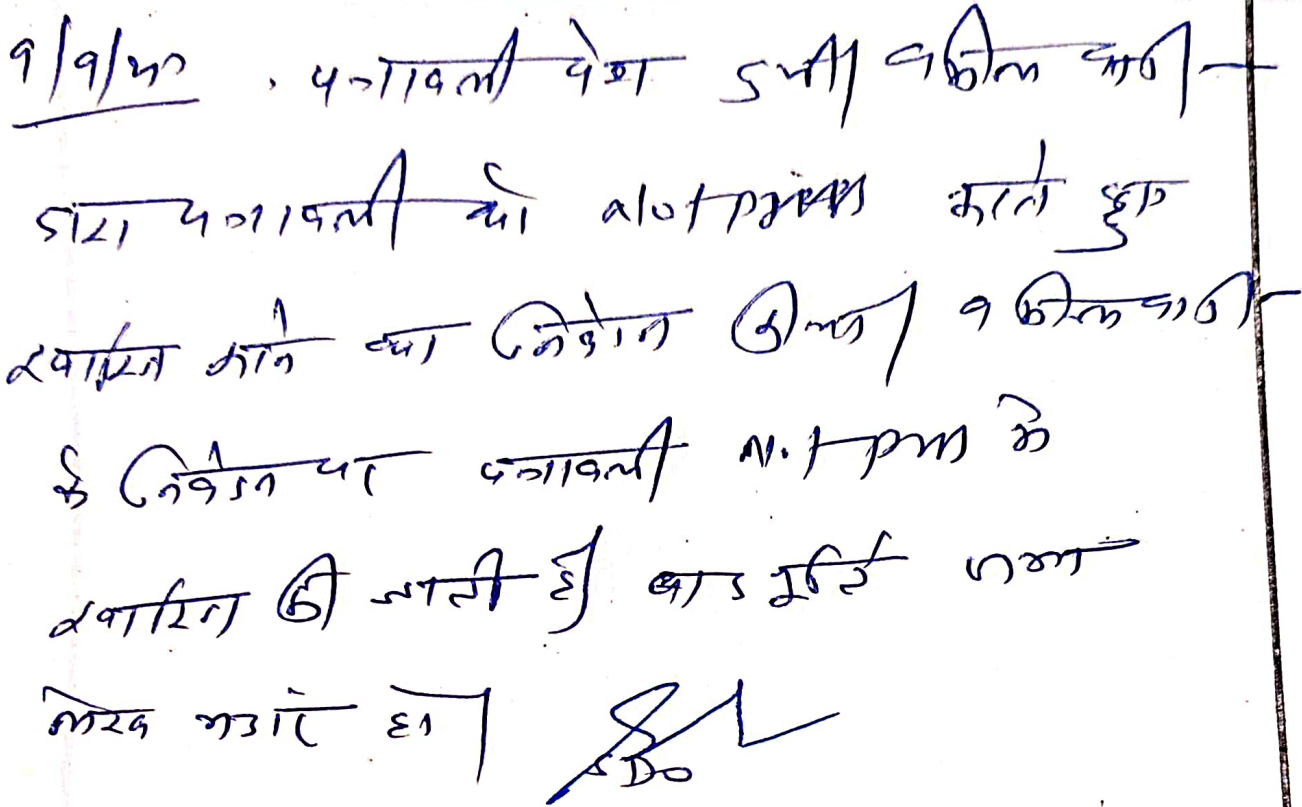 9/9/20. पत्रावली पेश हुयी। वकील वादी
द्वारा पत्रावली को Not press करते हुए
खारिज करने का निवेदन किया। वकील वादी
के निवेदन पर पत्रावली Not press में
खारिज की जाती है। बाद पूर्ति जमा
लेख भण्डार हो। SDO